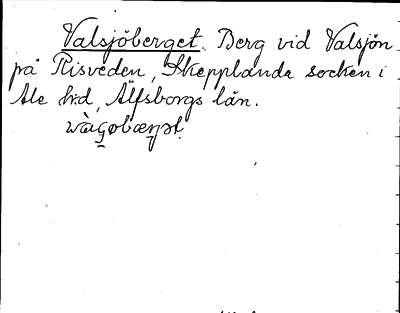 Valsjöberget. Berg vid Valsjön
på Risveden, Skepplanda socken i
Ale hd, Älfsborgs län.